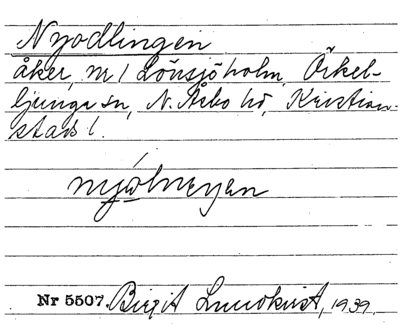 Nyodlingen
åker, m 1 Lönsjöholm, Örkel-
ljunga sn, N. Åsbo hd, Kristian-
stads l.
Nr 5507. Birgit Lundkvist, 1939.